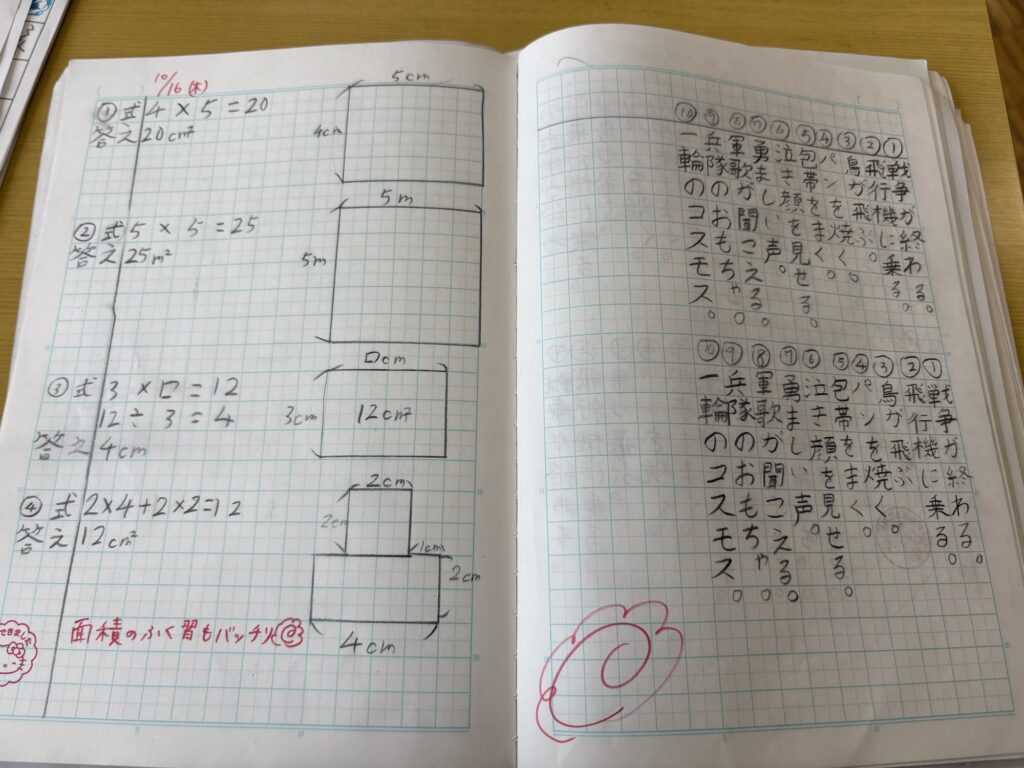 10/16(木)
① 式 4×5=20
答え 20cm²
5cm
4cm
② 式 5×5=25
答え 25m²
5m
5m
③ 式 3×□=12
12÷3=4
答え 4cm
□cm
3cm
12cm²
④ 式 2×4+2×2=12
答え 12cm²
2cm
2cm
1cm
2cm
4cm
面積のふく習もバッチリ
できました
① 戦争が終わる。
② 飛行機に乗る。
③ 鳥が飛ぶ。
④ パンを焼く。
⑤ 包帯をまく。
⑥ 泣き顔を見せる。
⑦ 勇ましい声。
⑧ 軍歌が聞こえる。
⑨ 兵隊のおもちゃ。
⑩ 一輪のコスモス。
① 戦争が終わる。
② 飛行機に乗る。
③ 鳥が飛ぶ。
④ パンを焼く。
⑤ 包帯をまく。
⑥ 泣き顔を見せる。
⑦ 勇ましい声。
⑧ 軍歌が聞こえる。
⑨ 兵隊のおもちゃ。
⑩ 一輪のコスモス